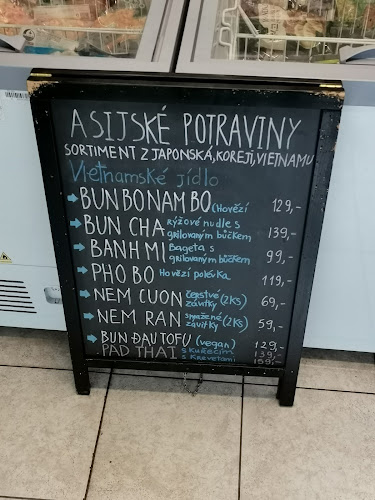 ASIJSKÉ POTRAVINY
SORTIMENT Z JAPONSKÁ, KOREJI, VIETNAMU
Vietnamské jídlo
BUN BO NAM BO (Hovězí 129,-
BUN CHA rýžové nudle s grilovaným bůčkem 139,-
BANH MI Bageta s grilovaným bůčkem 99,-
PHO BO Hovězí polévka 119,-
NEM CUON čerstvé závitky (2ks) 69,-
NEM RAN smažené závitky (2ks) 59,-
BUN ĐAU TOFU (vegan) 129,-
PAD THAI s kuřecím 139,-
s krevetami 159,-